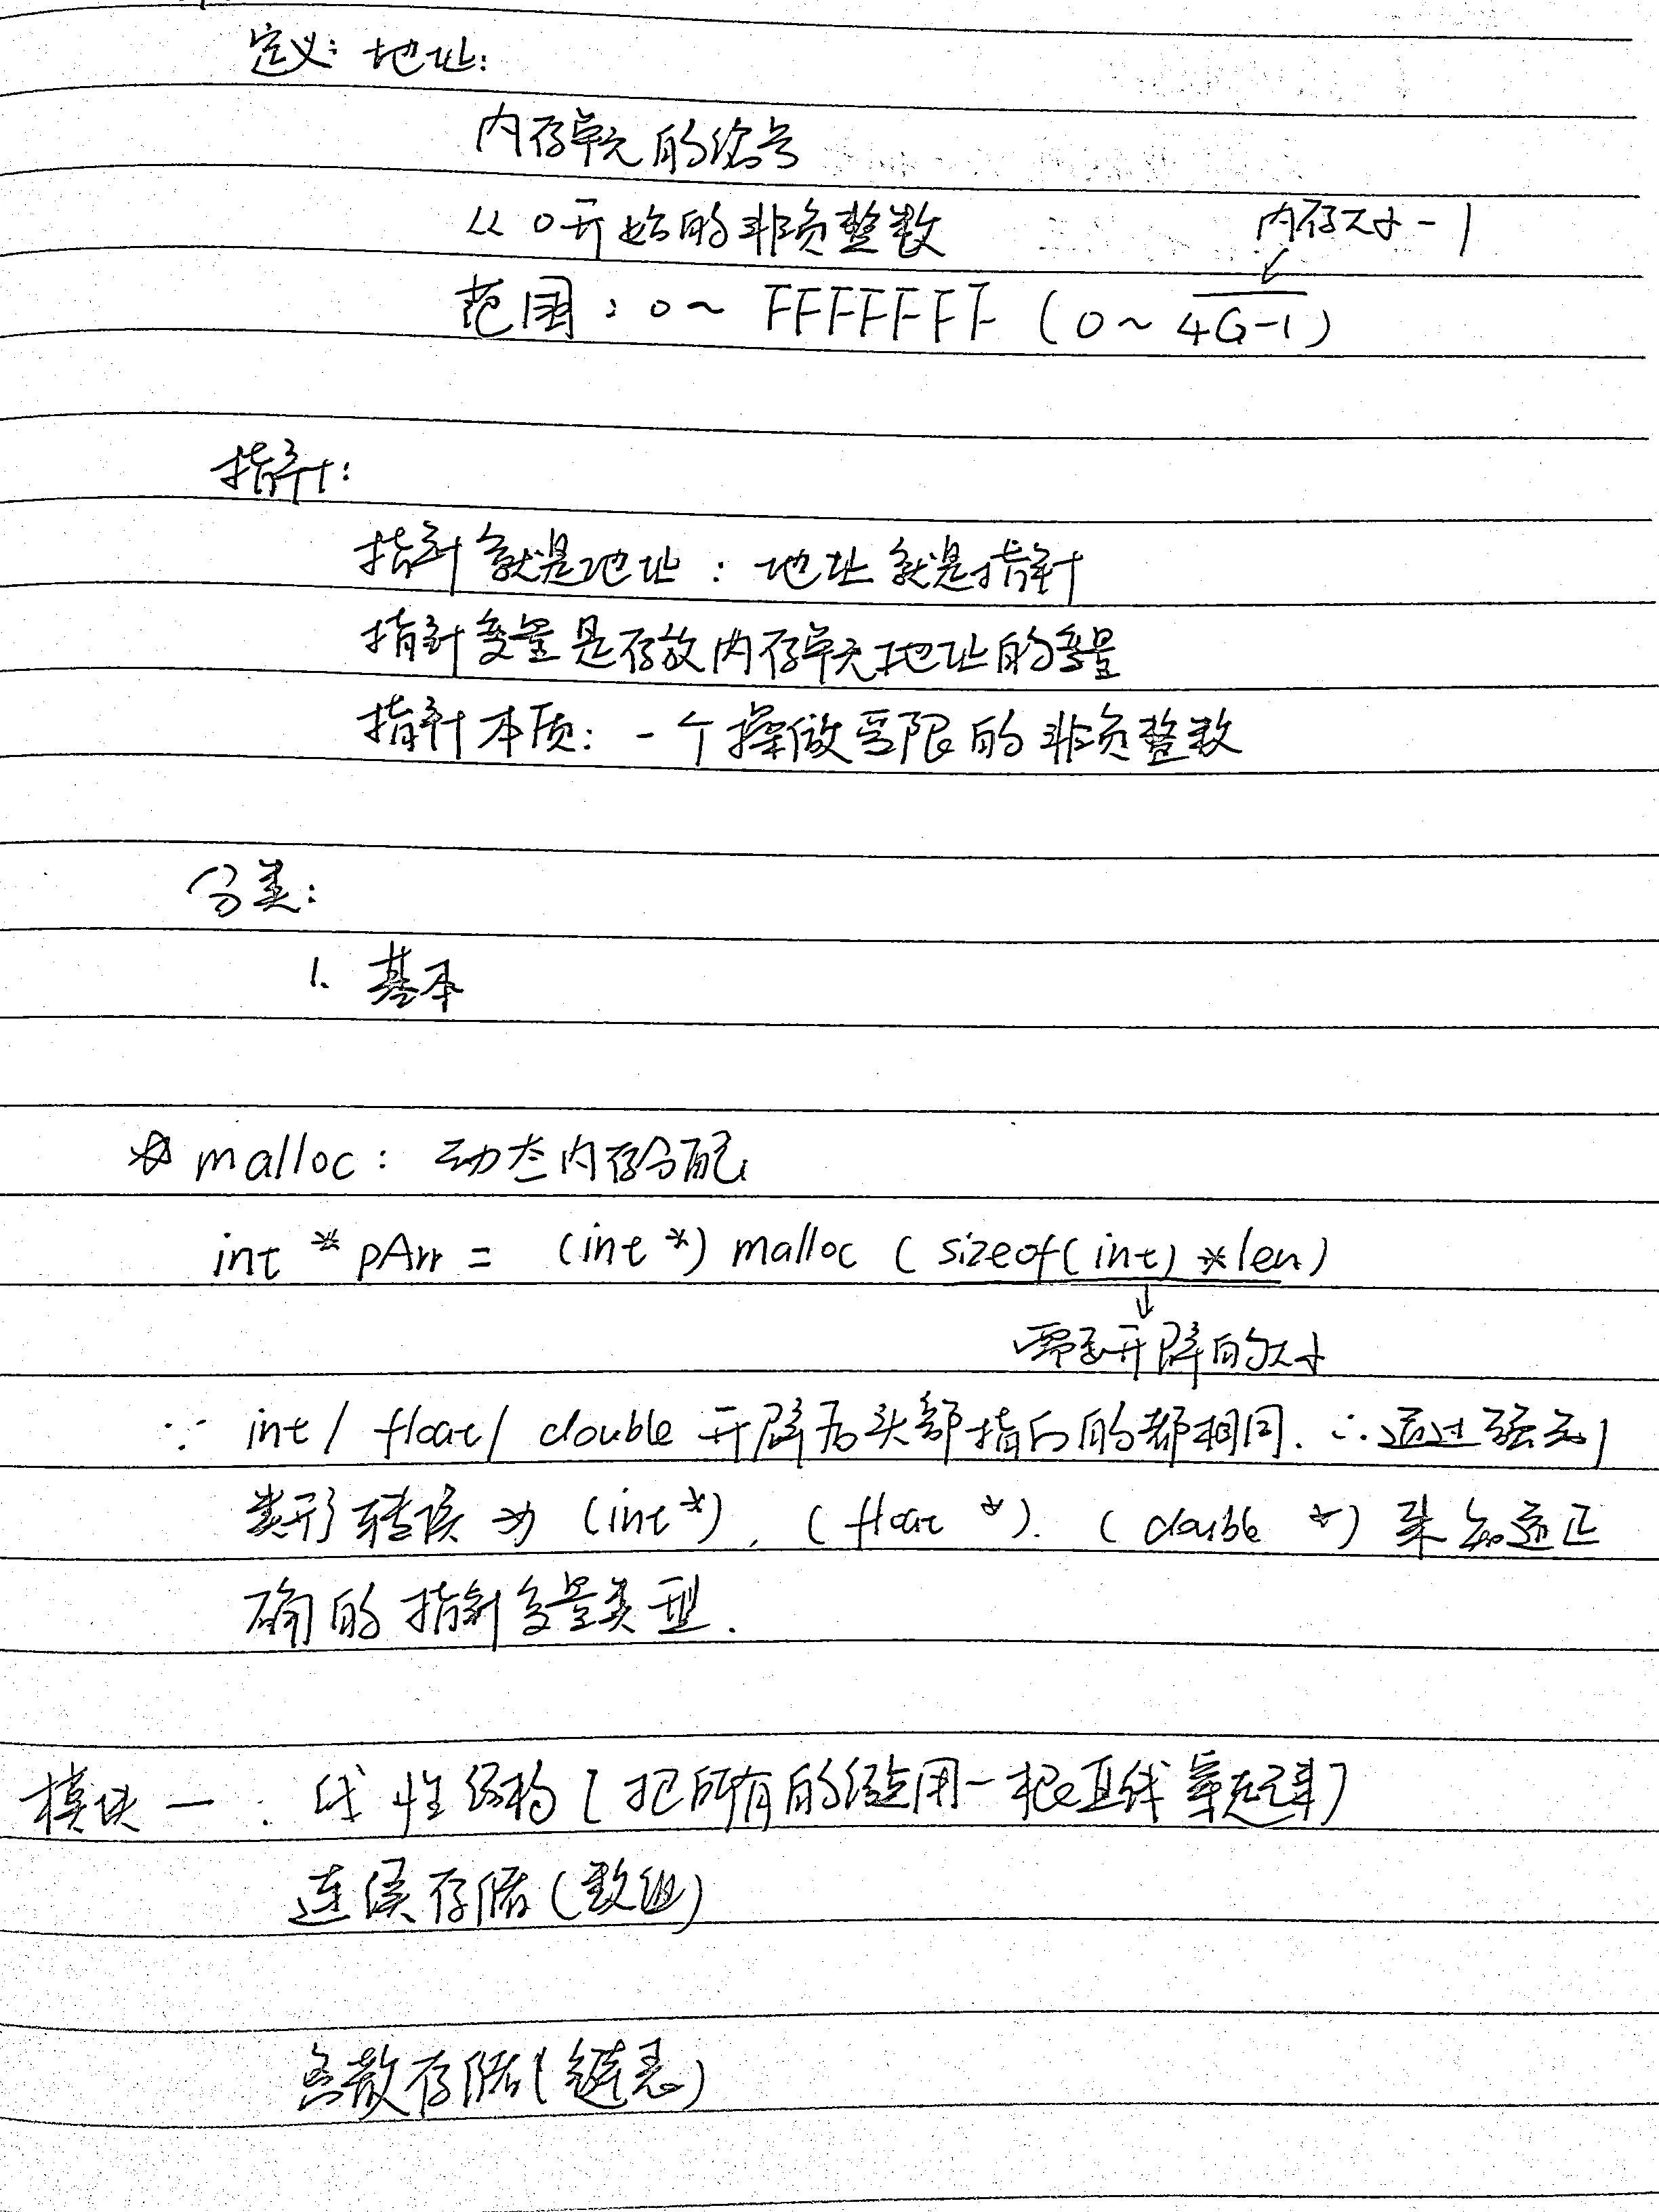 定义: 地址:
内存单元的编号
从0开始的非负整数
内存大小-1
范围: 0~ FFFFFFF (0~4G-1)
指针:
指针就是地址: 地址就是指针
指针变量是存放内存单元地址的变量
指针本质: 一个操做受限的非负整数
分类:
1. 基本
☆ malloc: 动态内存分配
int * pArr = (int *) malloc ( sizeof(int) * len)
↓
需要开辟的大小
∵ int / float / double 开辟后头部指向的都相同. ∴通过强制
类形转换为 (int *), (float *). (double *) 来知道正
确的指针变量类型.
模块一: 线性结构[把所有的结点用一根直线穿起来]
连续存储(数组)
离散存储(链表)